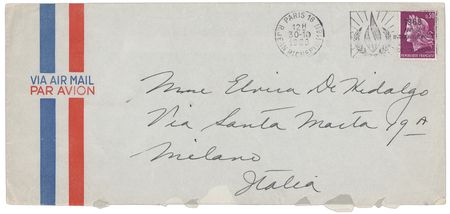 PARIS 16
12H
30-10
VIA AIR MAIL
PAR AVION
0,30
REPUBLIQUE FRANÇAISE
Mme Elvira De Hidalgo
Via Santa Marta 19A
Milano
Italia